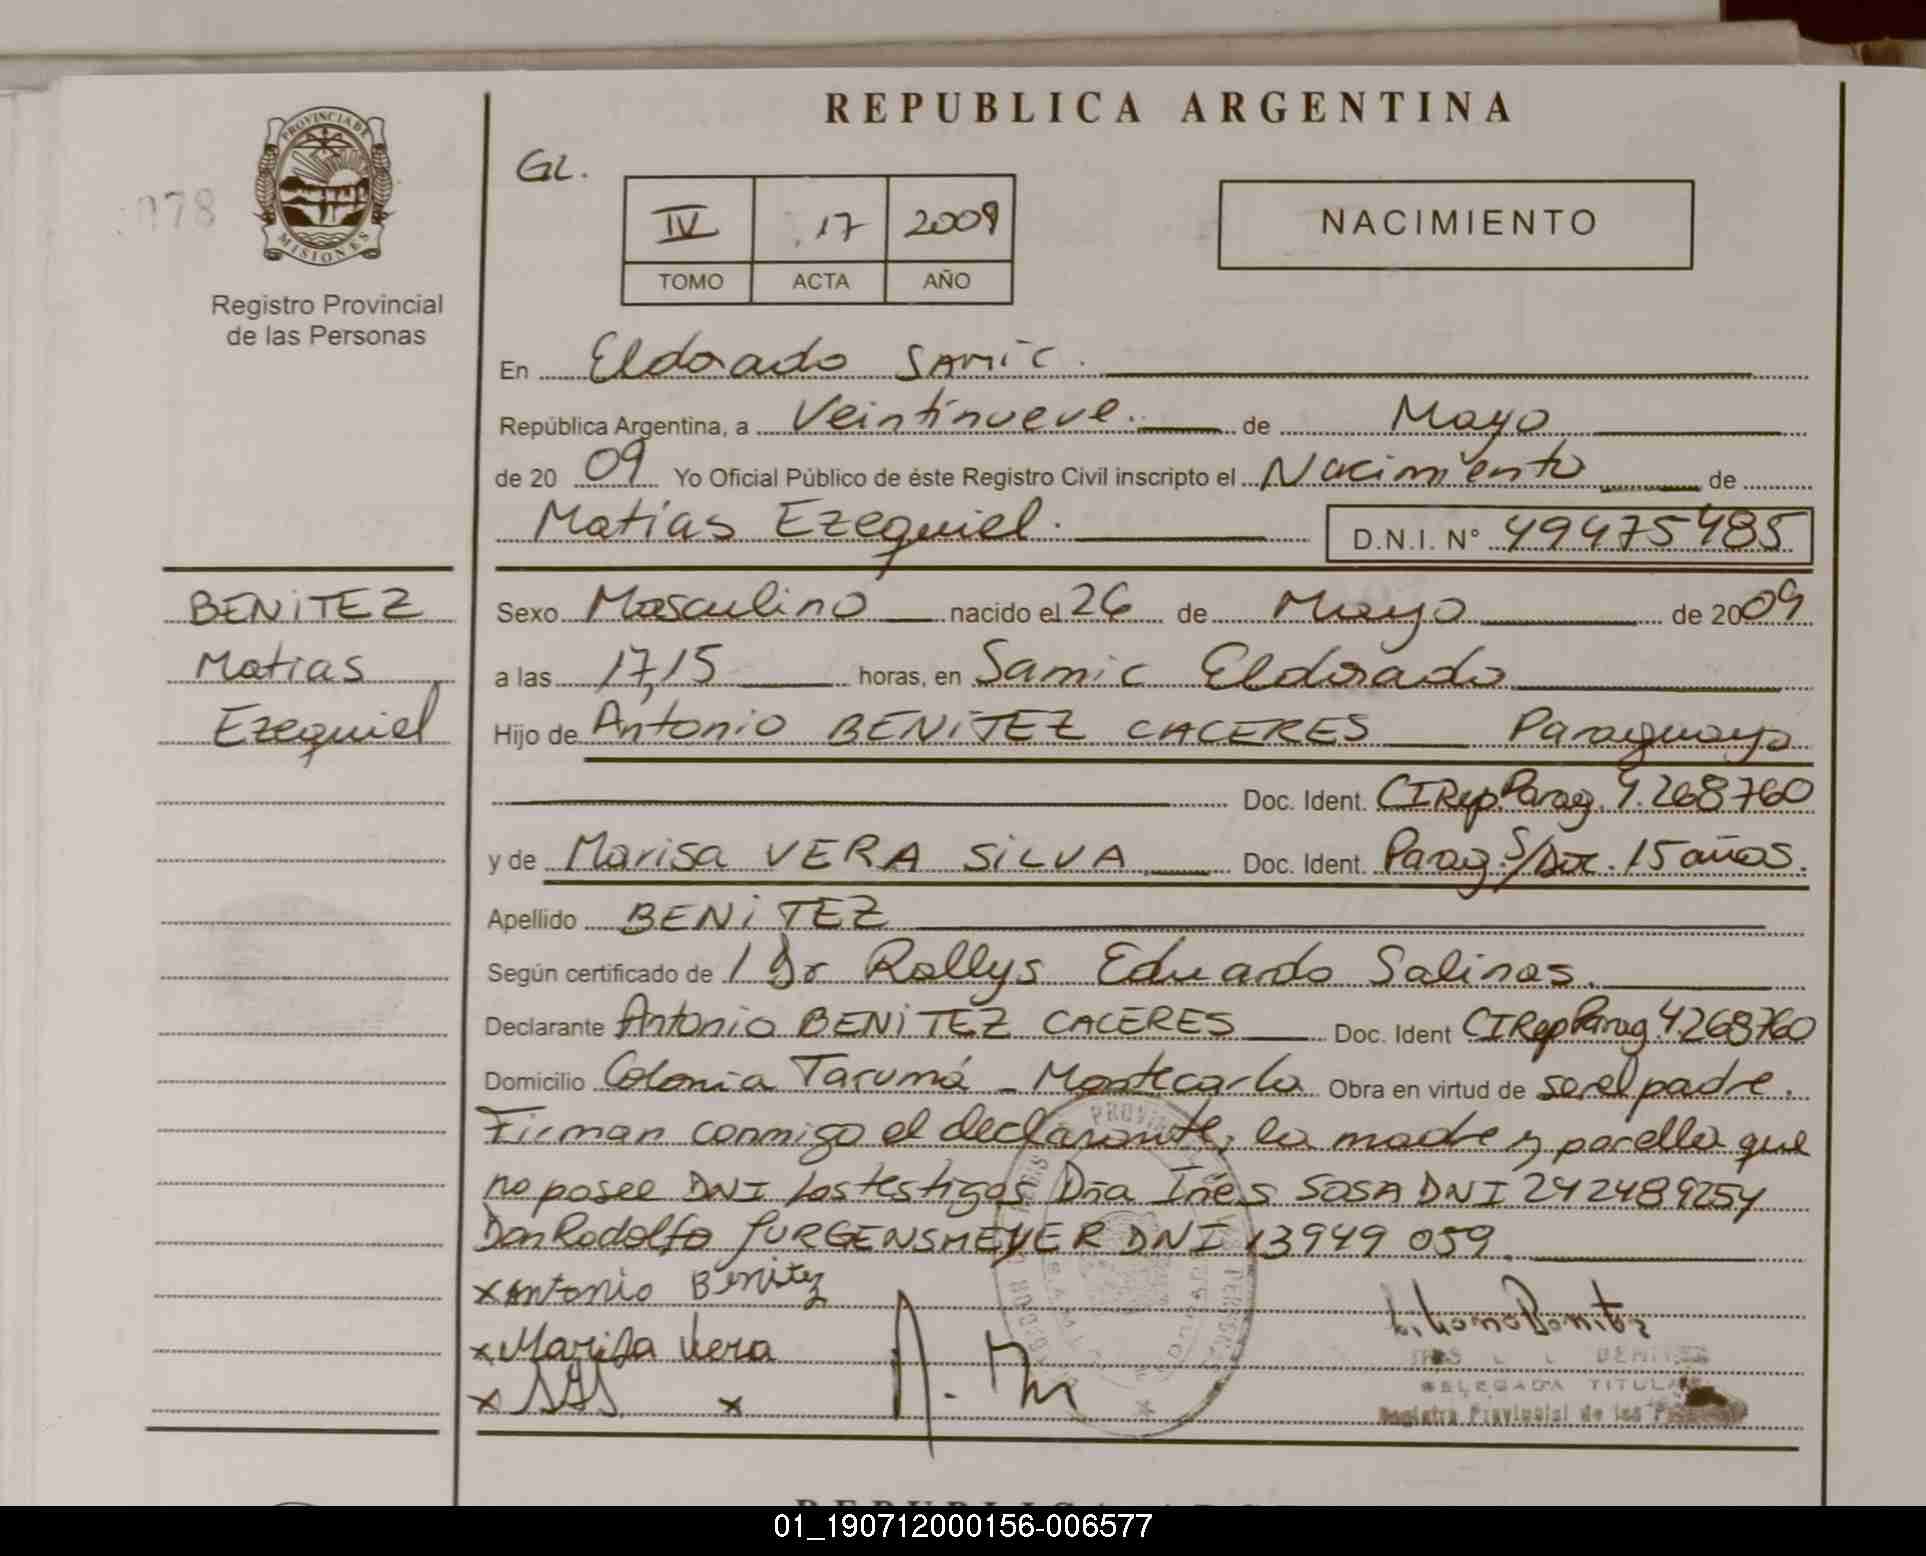 REPUBLICA ARGENTINA
PROVINCIA DE
MISIONES
Registro Provincial
de las Personas
GL.
IV 17 2009
TOMO ACTA AÑO
NACIMIENTO
En Eldorado SAMIC.
República Argentina, a Veintinueve. de Mayo
de 20 09 Yo Oficial Público de éste Registro Civil inscripto el Nacimiento de
Matias Ezequiel. D.N.I. N° 49475485
BENITEZ
Matias
Ezequiel
Sexo Masculino nacido el 26 de Mayo de 2009
a las 17,15 horas, en Samic Eldorado
Hijo de Antonio BENITEZ CACERES Paraguayo
Doc. Ident. CIRep.Parag. 4.268760
y de Marisa VERA SILVA Doc. Ident. Parag. S/Doc. 15 años.
Apellido BENITEZ
Según certificado de / Dr Rollys Eduardo Salinas.
Declarante Antonio BENITEZ CACERES Doc. Ident CIRepParag. 4.268760
Domicilio Colonia Tarumá - Montecarlo Obra en virtud de ser el padre.
Firman conmigo el declarante, la madre y por ella que
no posee DNI los testigos Dña Ines SOSA DNI 242489254
Don Rodolfo JURGENSMEYER DNI 13949 059.
x Antonio Benitez
x Marisa Vera
x x
DELEGADA TITULAR
Registro Provincial de las
01_190712000156-006577